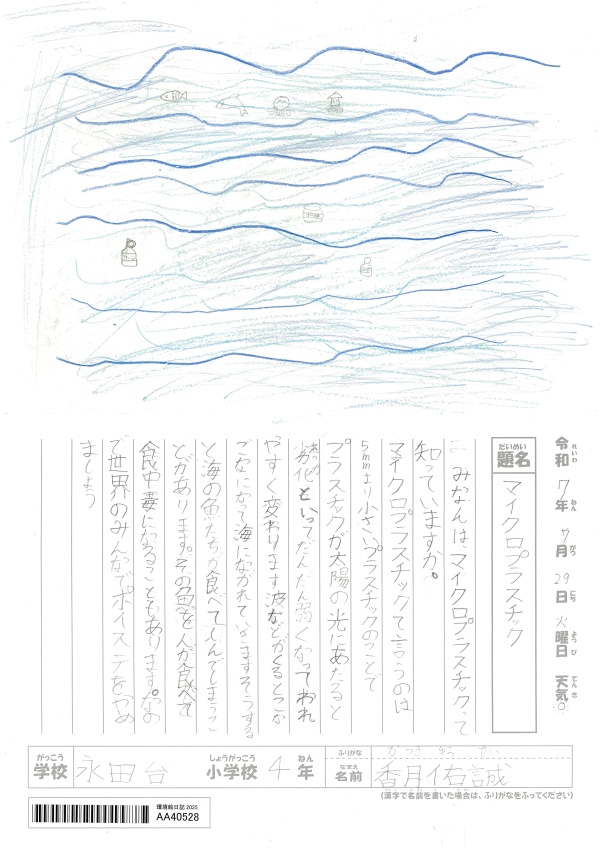 令和 7年 7月 29日 火曜日 天気
れいわ ねん がつ にち よう び てん き
だいめい
題名
マイクロプラスチック
みなんは、マイクロプラスチックって
知っていますか。
マイクロプラスチックて言うのは
5mmより小さいプラスチックのことで
プラスチックが太陽の光にあたると
劣化といってだんだん弱くなってわれ
やすく変わります波などがくるとこな
ごなになって海にながれていきますそうする
と海の魚たちが食べてしんでしまうこ
とがあります。その魚を人が食べて
食中毒になることもあります。なの
で世界のみんなでポイステをやめ
ましょう
がっこう
学校
永田台
しょうがっこう
小学校
4
ねん
年
ふりがな
かつき ゆう せい
なまえ
名前
香月佑誠
(漢字で名前を書いた場合は、ふりがなをふってください)
環境絵日記 2025
AA40528